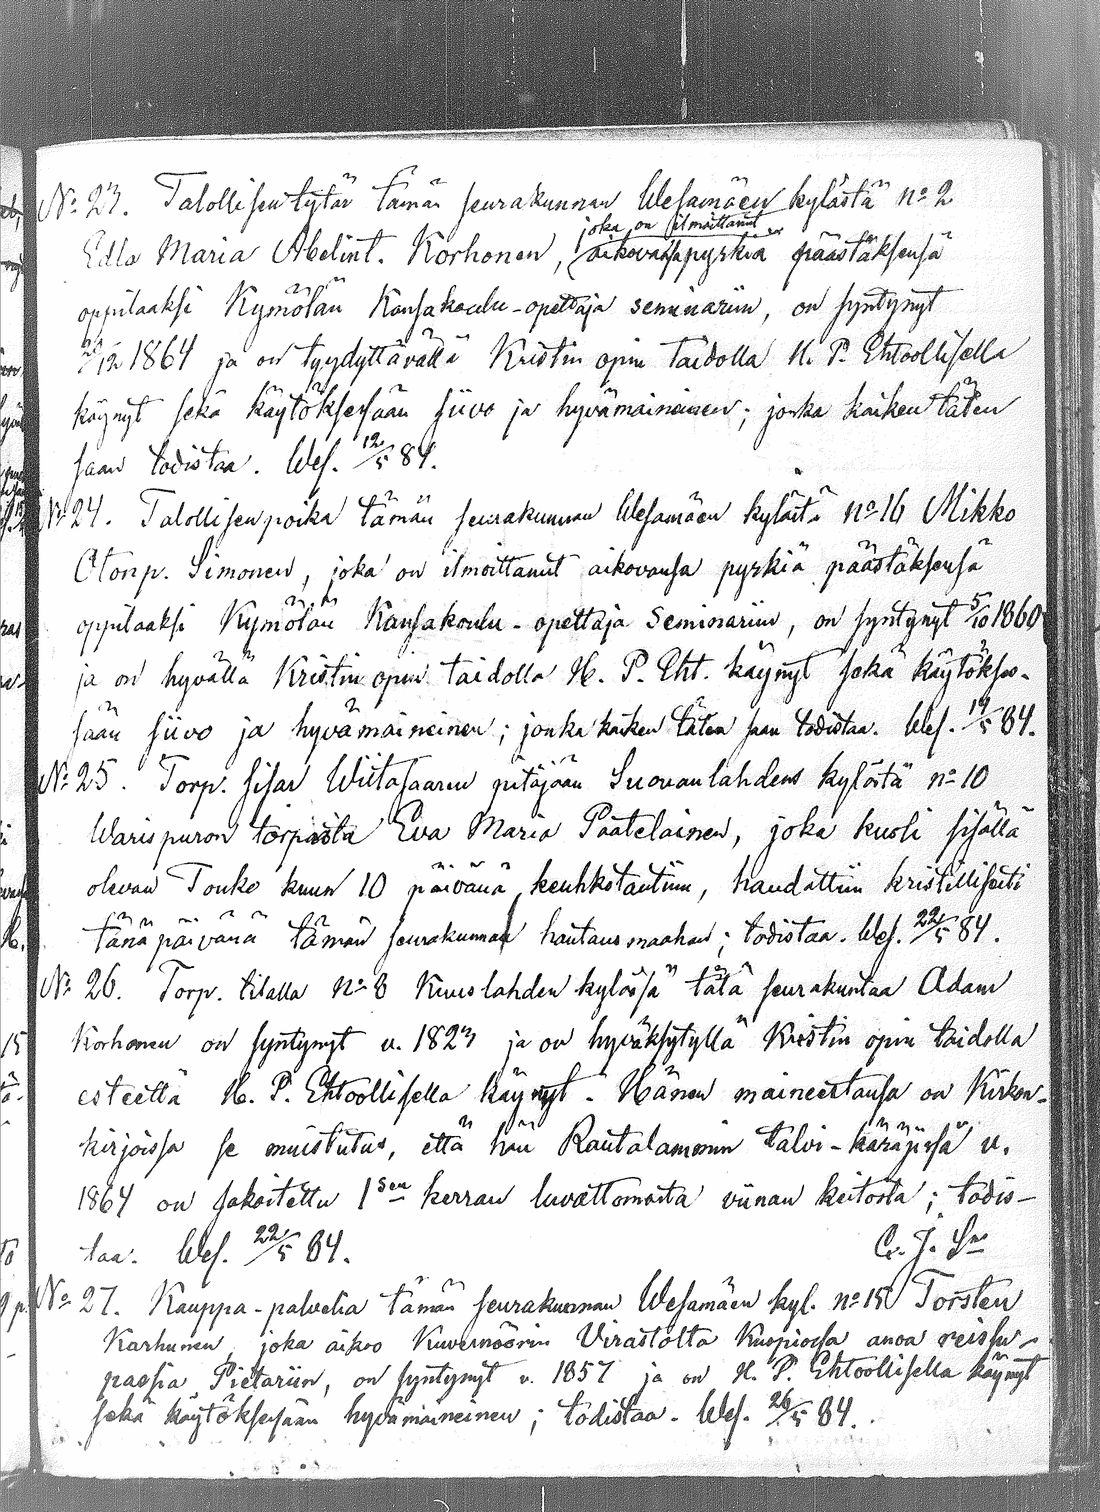 No 23. Talollisen tytär tämän seurakunnan Wesamäen kylästä no 2
joka on ilmoittanut
Edla Maria Abelint. Korhonen, aikovansa pyrkiä päästäksensä
oppilaaksi Kymölän Kansakoulu-opettaja seminariin, on syntynyt
/12 1864 ja on tyydyttävällä Kristin opin taidolla H. P. Ehtoollisella
käynyt sekä käytöksessään siivo ja hyvämaineinen; jonka kaiken täten
saan todistaa. Wes. 12/5 84.
No 24. Talollisen poika tämän seurakunnan Wesamäen kylästä no 16 Mikko
Otonp. Simonen, joka on ilmoittanut aikovansa pyrkiä päästäksensä
oppilaaksi Kymölän Kansakoulu-opettaja Seminariin, on syntynyt 5/10 1860
ja on hyvällä Kristin opin taidolla H. P. Eht. käynyt sekä käytökses-
sään siivo ja hyvämaineinen; jonka kaiken täten saan todistaa. Wes. 19/5 84.
No 25. Torp. sisar Wiitasaaren pitäjään Suovanlahdens kylästä no 10
Warispuron torpasta Eva Maria Paatelainen, joka kuoli sisällä
olevan Touko kuun 10 päivänä keuhkotautiin, haudattiin kristillisesti
tänä päivänä tämän seurakunnan hautausmaahan; todistaa. Wes. 22/5 84.
No 26. Torp. tilalla No 8 Kuuslahden kylässä tätä seurakuntaa Adam
Korhonen on syntynyt v. 1823 ja on hyväksytyllä Kristin opin taidolla
esteettä H. P. Ehtoollisella käynyt. Hänen maineestansa on Kirkon-
kirjoissa se muistutus, että hän Rautalammin talvi-käräjissä v.
1864 on sakoitettu 1sen kerran luvattomasta viinan keitosta; todis-
taa. Wes. 22/5 84. C. J. Sns
No 27. Kauppa-palvelia tämän seurakunnan Wesamäen kyl. no 15 Torsten
Karhunen, joka aikoo Kuvernöörin Virastolta Kuopiossa anoa reissu-
passia Pietariin, on syntynyt v. 1857 ja on H. P. Ehtoollisella käynyt
sekä käytöksessään hyvämaineinen; todistaa. Wes. 26/5 84.